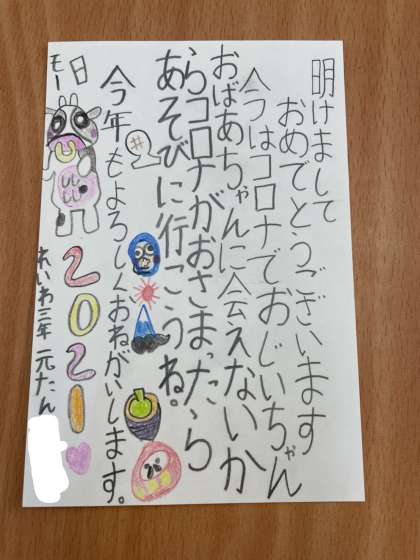 明けまして
おめでとうございます
今はコロナでおじいちゃん
おばあちゃんに会えないか
らコロナがおさまったら
あそびに行こうね。
今年もよろしくおねがいします。
日
モー
2021
れいわ三年 元たん